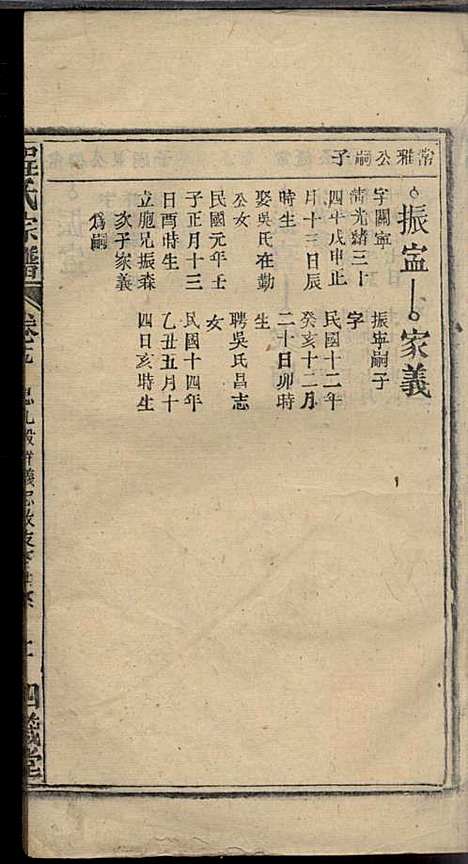 常雅公嗣子
振寍
家義
字關寧
清光緒三十
四年戊申正
月十三日辰
時生
娶吳氏在勤
公女
民國元年壬
子正月十三
日酉時生
立胞兄振森
次子家義
爲嗣
振寧嗣子
字
民國十二年
癸亥十二月
二十日卯時
生
聘吳氏昌志
女
民國十四年
乙丑五月十
四日亥時生
氏宗譜
卷
四義堂